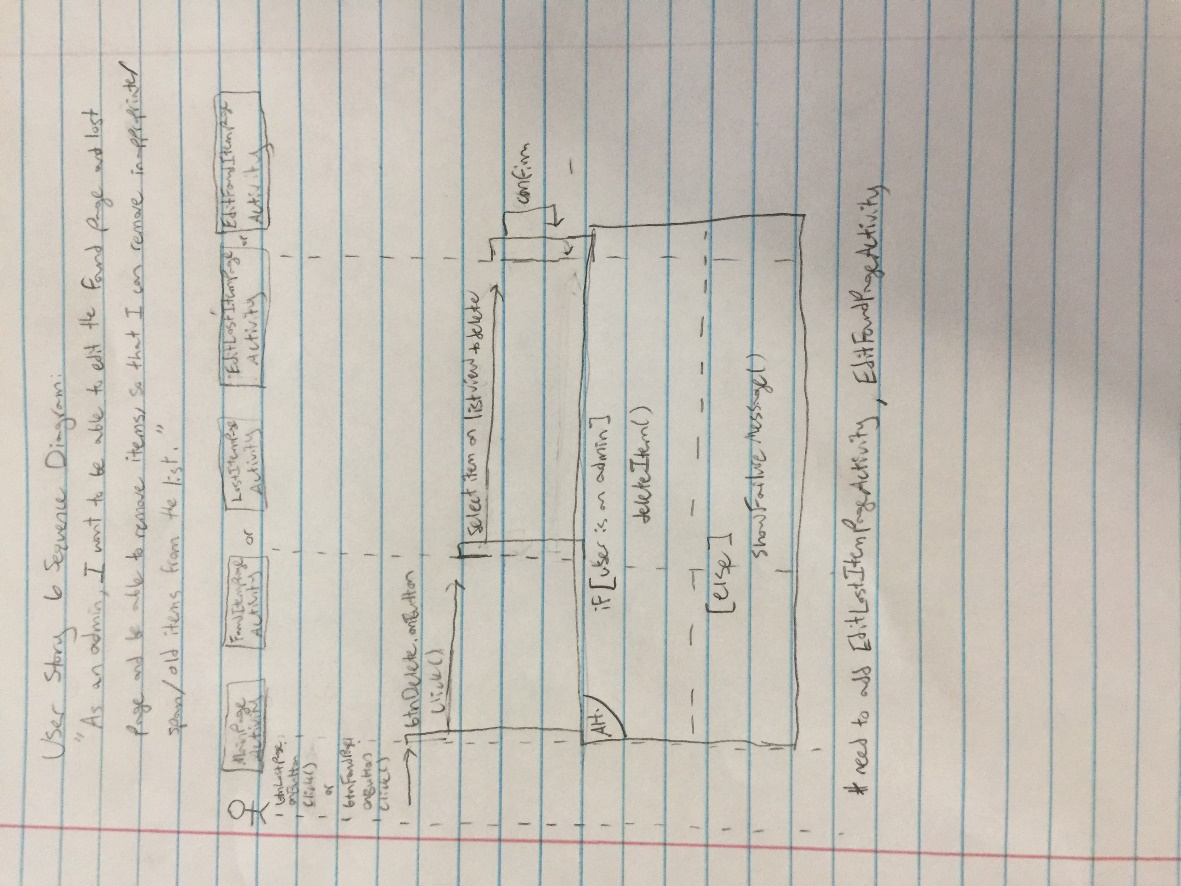 User Story 6 Sequence Diagram:
"As an admin, I want to be able to edit the Found Page and Lost
Page and be able to remove items, so that I can remove
spam/old items from the list."
MainPage
Activity
FoundItemPage
Activity
or
LostItemPage
Activity
EditLostItemPage
Activity
or
EditFoundItemPage
Activity
btnLostPage.
onButton
Click()
or
btnFoundPage
onButton
Click()
btnDelete.onButton
Click()
Select item on listview to delete
confirm
Alt.
if [user is an admin]
deleteItem()
[else]
showFailureMessage()
# need to add EditLostItemPageActivity, EditFoundPageActivity